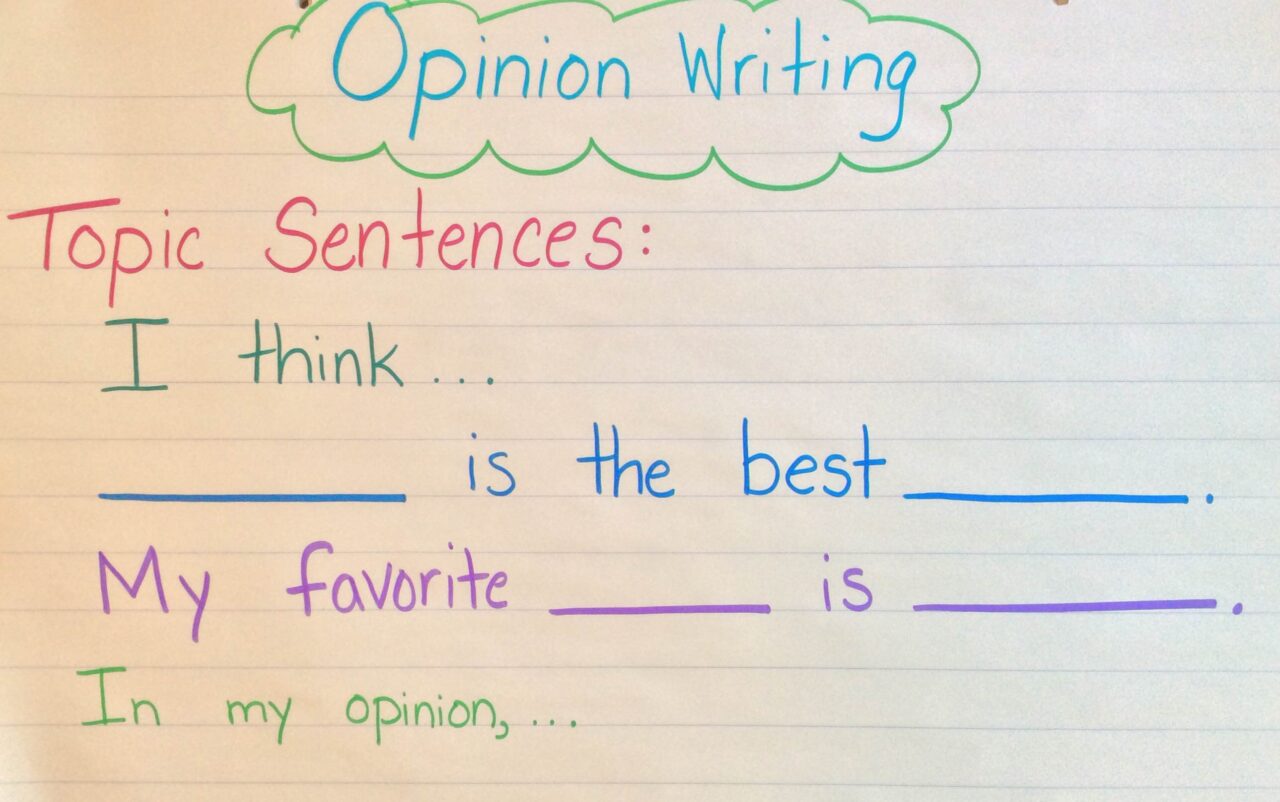 Opinion Writing
Topic Sentences:
I think ...
__________ is the best __________.
My favorite ________ is __________.
In my opinion, ...